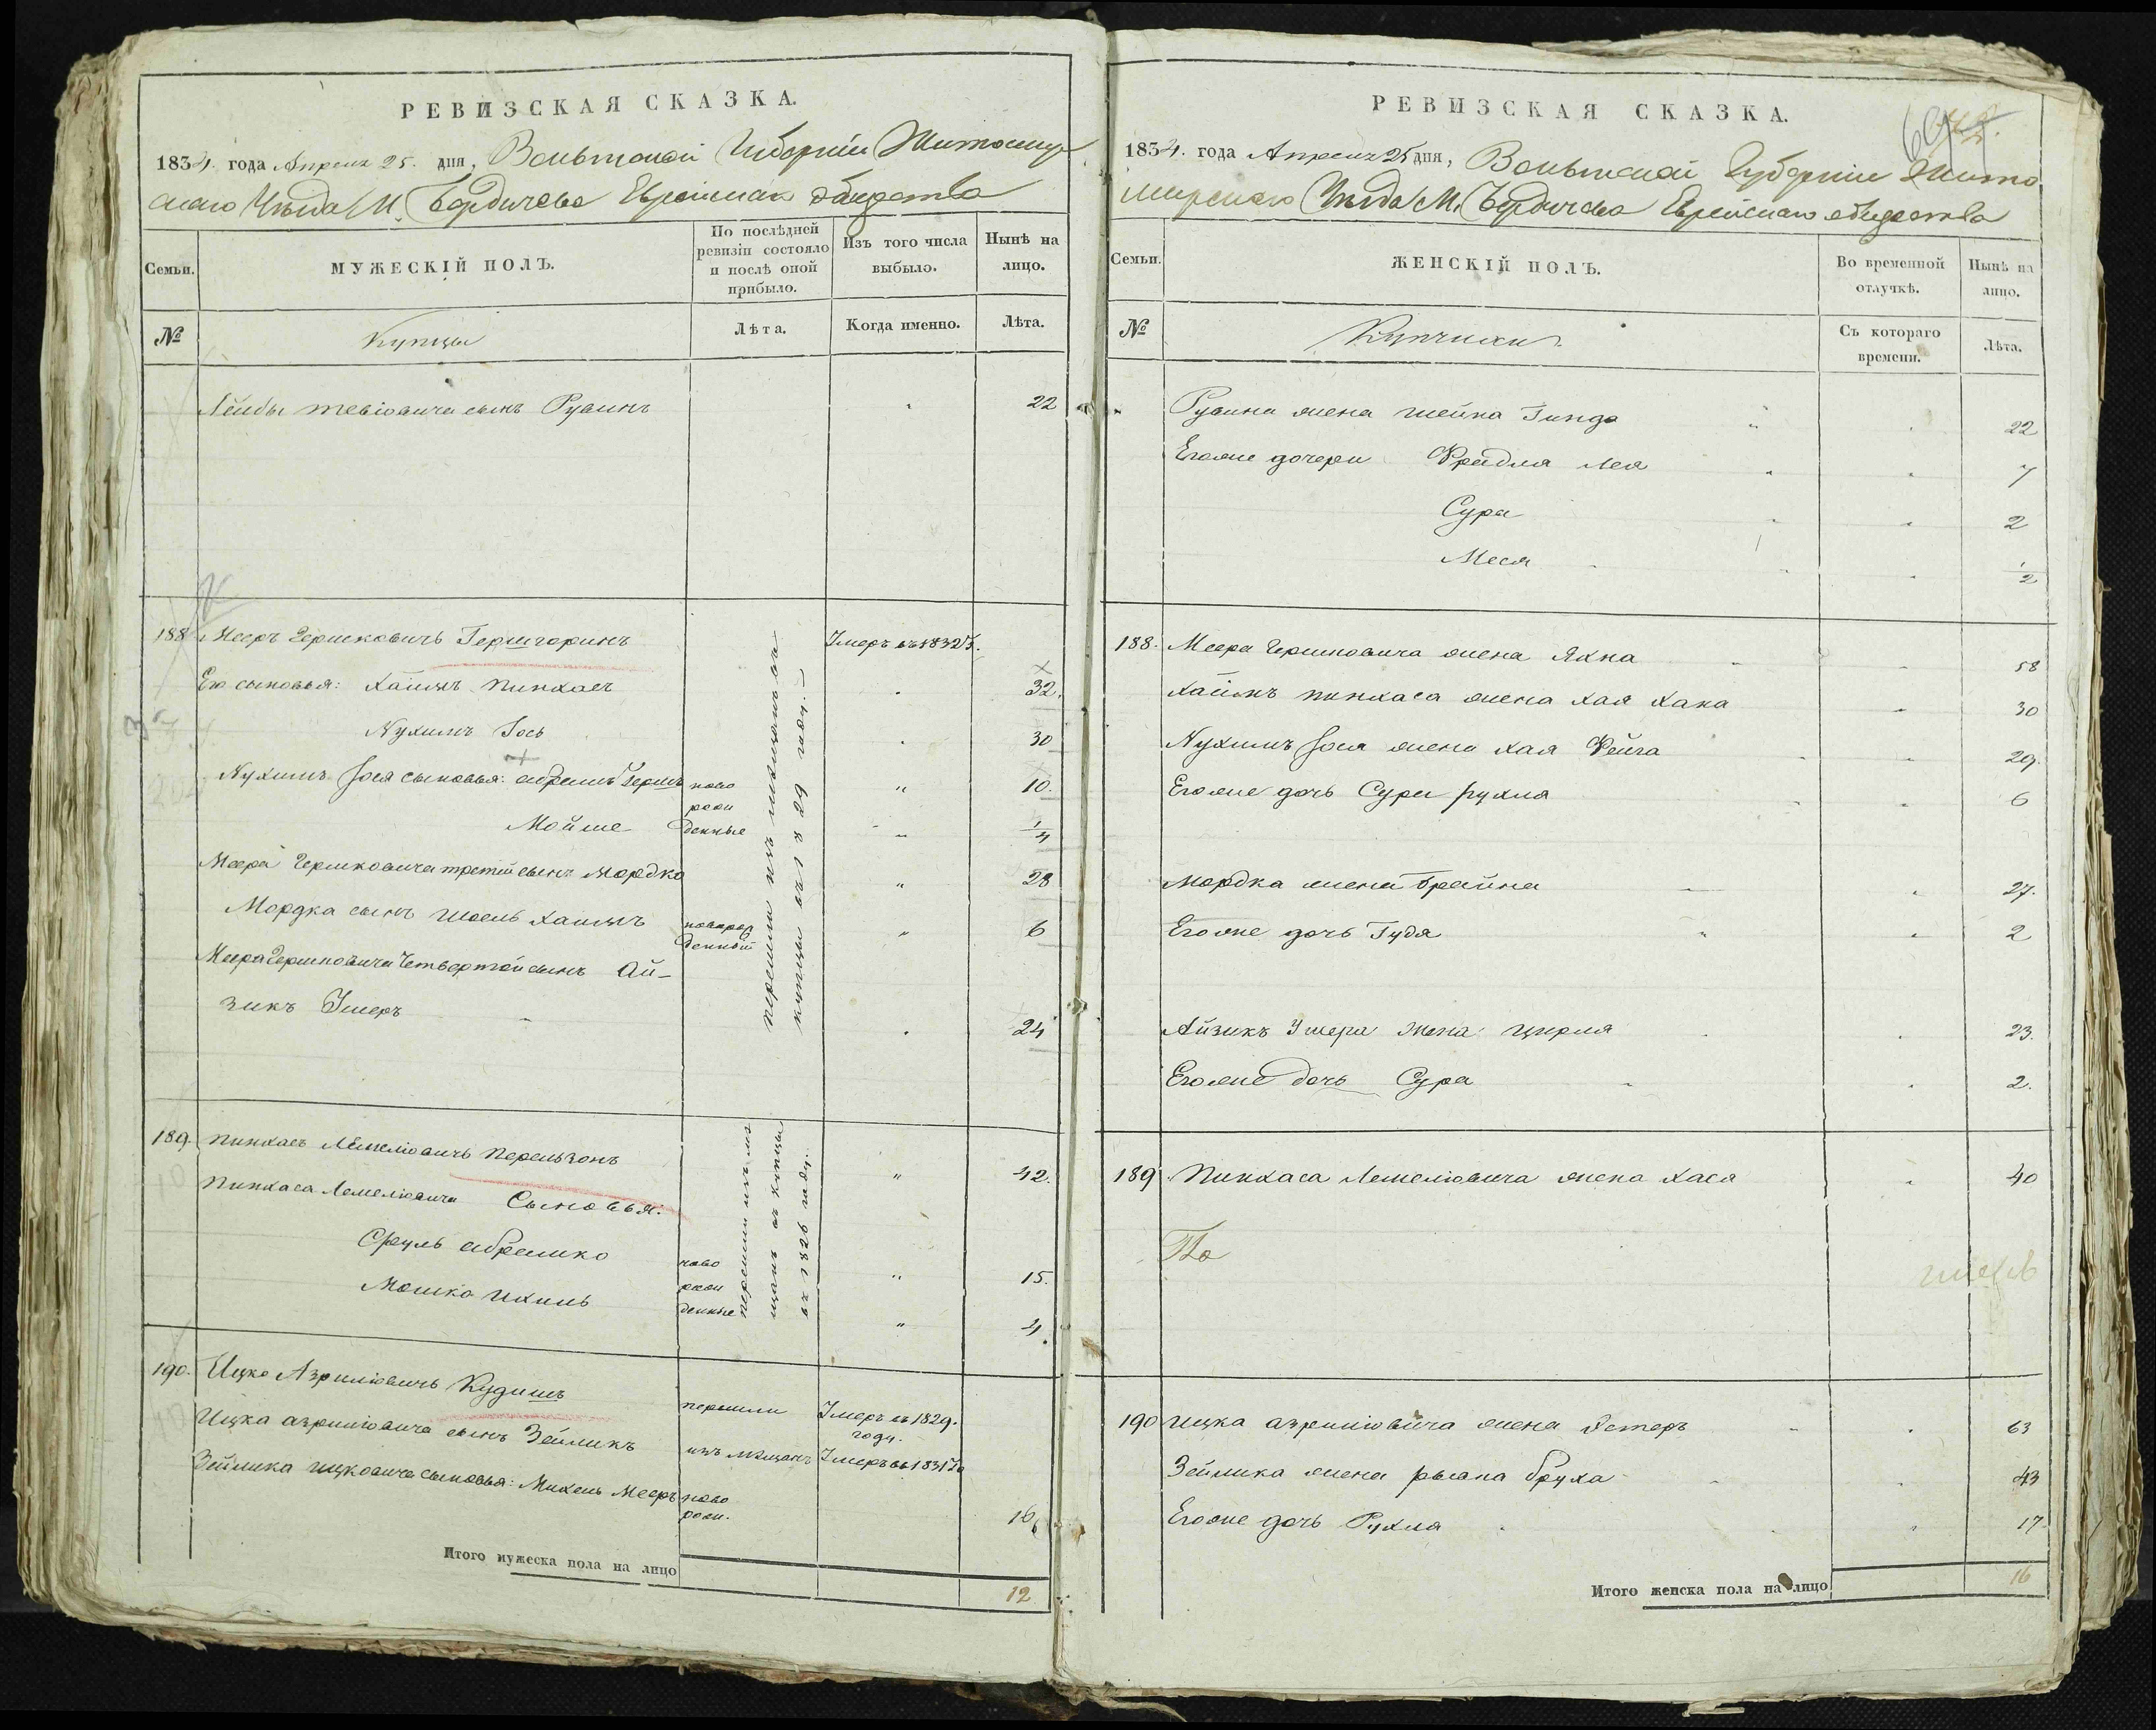 РЕВИЗСКАЯ СКАЗКА.
1834. года Апреля 25. дня, Волынской Губерніи Житомир-
скаго Уѣзда М. Бердичева Еврейскаго общества
Семьи.
МУЖЕСКІЙ ПОЛЪ.
По послѣдней ревизіи состояло и послѣ оной прибыло.
Изъ того числа выбыло.
Нынѣ на лицо.
№
Купцы
Лѣта.
Когда именно.
Лѣта.
Лейбы Тевіовича сынъ Рувинъ 22
188 Мееръ Гершковичъ Гершгоринъ Умеръ въ 1832 г.
Его сыновья: Хаимъ Пинхасъ 32.
Нухимъ Іось 30
Нухимъ Іося сыновья: Абрамъ Гершъ ново 10.
рож
Мойше денные 1/4
Меера Гершковича третій сынъ Мордко 28
Мордка сынъ Шоель Хаимъ новорож 6
денный
Меера Гершковича Четвертой сынъ Ай-
зикъ Умеръ 24
перешли изъ мещанъ въ
купцы въ 1829 году.
189. Пинхасъ Лемеліовичъ Перельзонъ 42.
Пинхаса Лемеліовича Сыновья:
Сруль Абрамко ново 15.
рож
Мошко Ихиль денные 4.
перешли изъ ме
щанъ въ купцы
въ 1826 году.
190. Ицко Азриліовичъ Кудишъ перешли Умеръ въ 1829.
году.
Ицка Азриліовича сынъ Зейликъ изъ мѣщанъ Умеръ въ 1831 го
Зейлика Ицковича сыновья: Михель Мееръ ново
рож. 16
Итого мужеска пола на лицо 12
РЕВИЗСКАЯ СКАЗКА.
1834. года Апреля 25 дня, Волынской Губерніи Жито
мирскаго Уѣзда М. Бердичева Еврейскаго общества
Семьи.
ЖЕНСКІЙ ПОЛЪ.
Во временной отлучкѣ.
Нынѣ на лицо.
№
Купчихи
Съ котораго времени.
Лѣта.
Рувина жена Шейна Гинда 22
Егоже дочери Фрадля Лея 7
Сура 2
Меся 1/2
188. Меера Гершковича жена Яхна 58
Хаимъ Пинхаса жена Хая Хана 30
Нухимъ Іося жена Хая Фейга 29.
Егоже дочь Сура Рухля 6
Мордка жена Брайна 27.
Егоже дочь Гудя 2
Айзикъ Умера Жена Цирля 23.
Егоже дочь Сура 2.
189 Пинхаса Лемеліовича жена Хася 40
По
190 Ицка Азриліовича жена Эстеръ 63
Зейлика жена Рывка Бруха 43
Егоже дочь Рухля 17
Итого женска пола на лицо 16